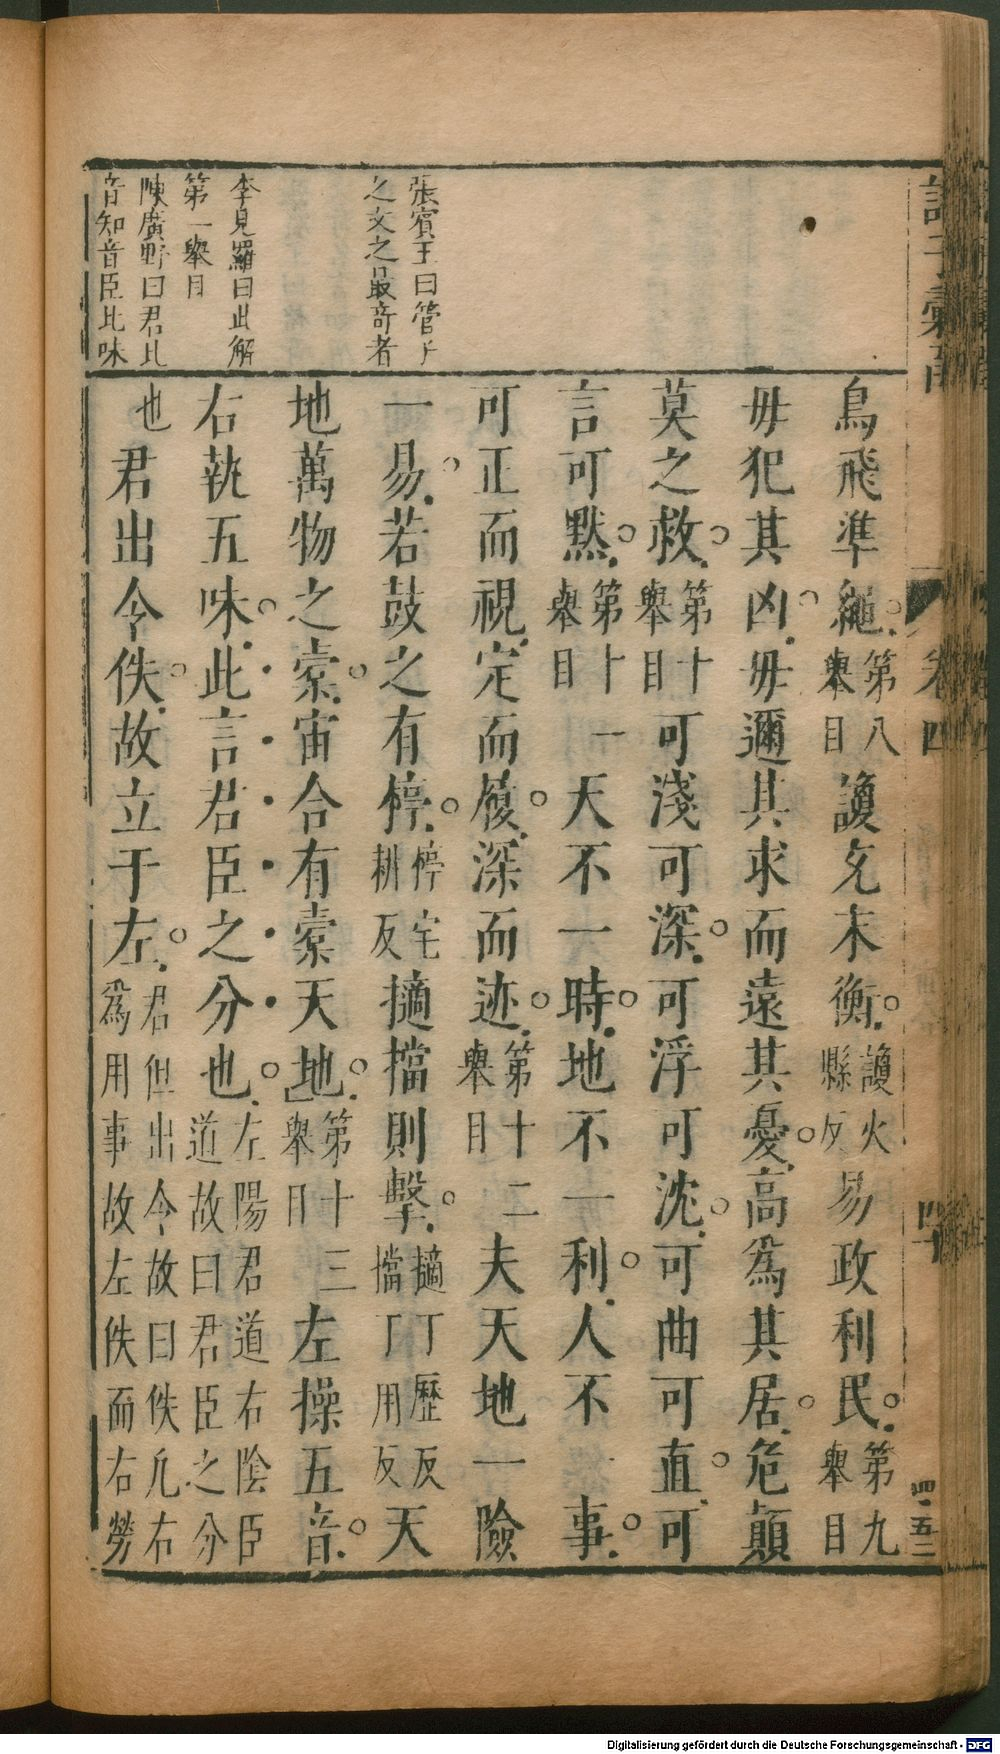 張賓王曰管子
之文之最奇者
李見羅曰此解
第一舉目
陳廣野曰君比
音知音臣比味
鳥飛準繩第八舉目讂充末衡讂火縣反易政利民第九舉目
毋犯其凶毋邇其求而遠其憂高爲其居危顛
莫之救第十舉目可淺可深可浮可沈可曲可直可
言可默第十一舉目天不一時地不一利人不一事
可正而視定而履深而迹第十二舉目夫天地一險
一易若鼓之有桴桴宅耕反擿擋則擊擿丁歷反擋丁用反天
地萬物之橐宙合有橐天地第十三舉目左操五音
右執五味此言君臣之分也左陽君道右陰臣道故曰君臣之分
也君出令佚故立于左君但出令故曰佚凡右爲用事故左佚而右勞
卷四
四十
四五二
Digitalisierung gefördert durch die Deutsche Forschungsgemeinschaft - DFG